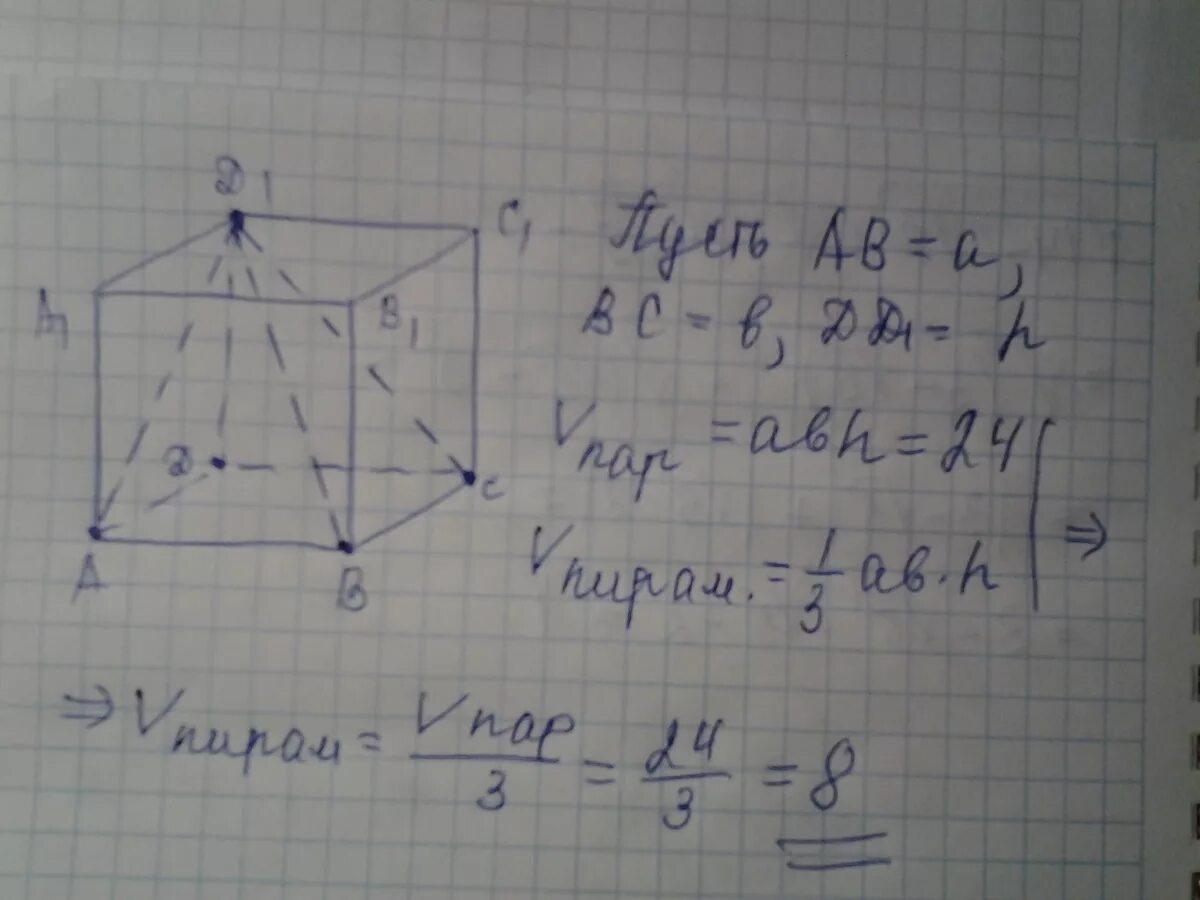 Д₁
C₁
A₁
B₁
Д
C
A
B
Пусть AB = a,
BC = b, ДД₁ = h
Vпар = abh = 24
Vпирам. = 1/3 ab · h
⇒
⇒ Vпирам = Vпар/3 = 24/3 = 8